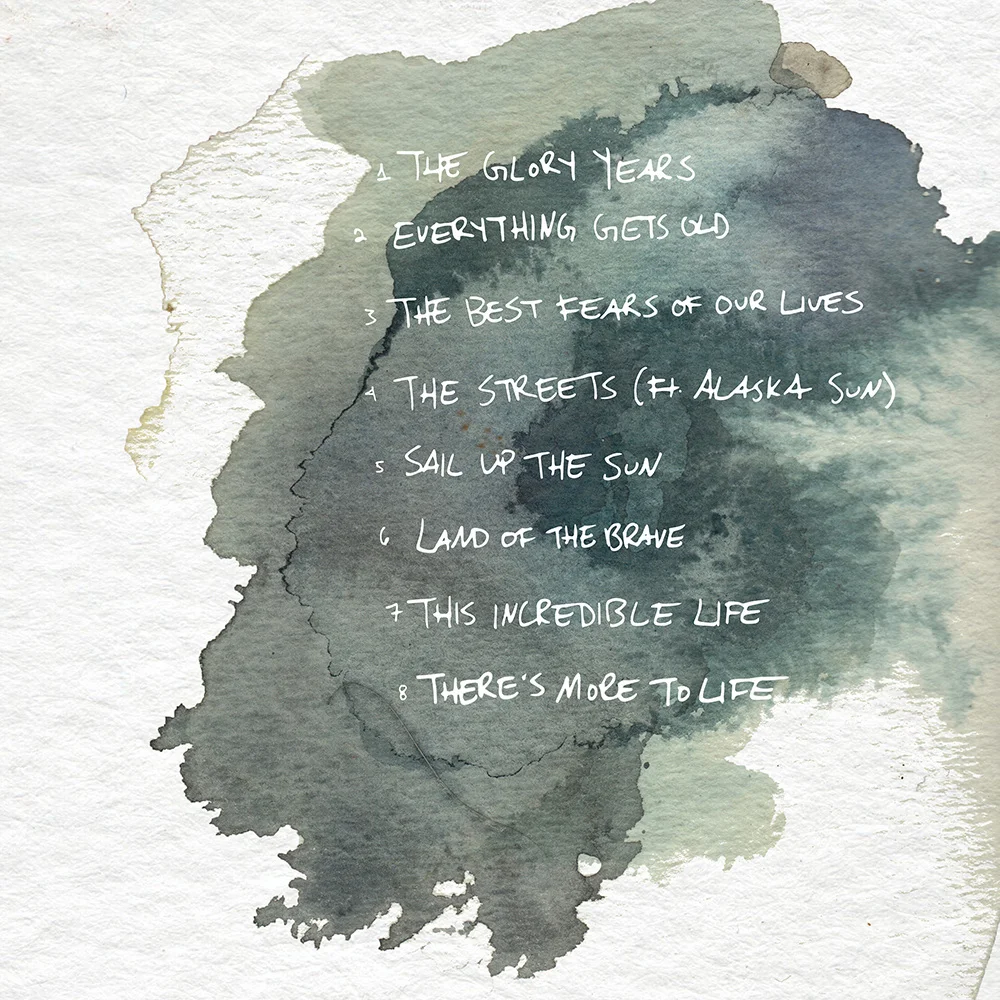 1 THE GLORY YEARS
2 EVERYTHING GETS OLD
3 THE BEST FEARS OF OUR LIVES
4 THE STREETS (Ft. ALASKA SUN)
5 SAIL UP THE SUN
6 LAND OF THE BRAVE
7 THIS INCREDIBLE LIFE
8 THERE'S MORE TO LIFE